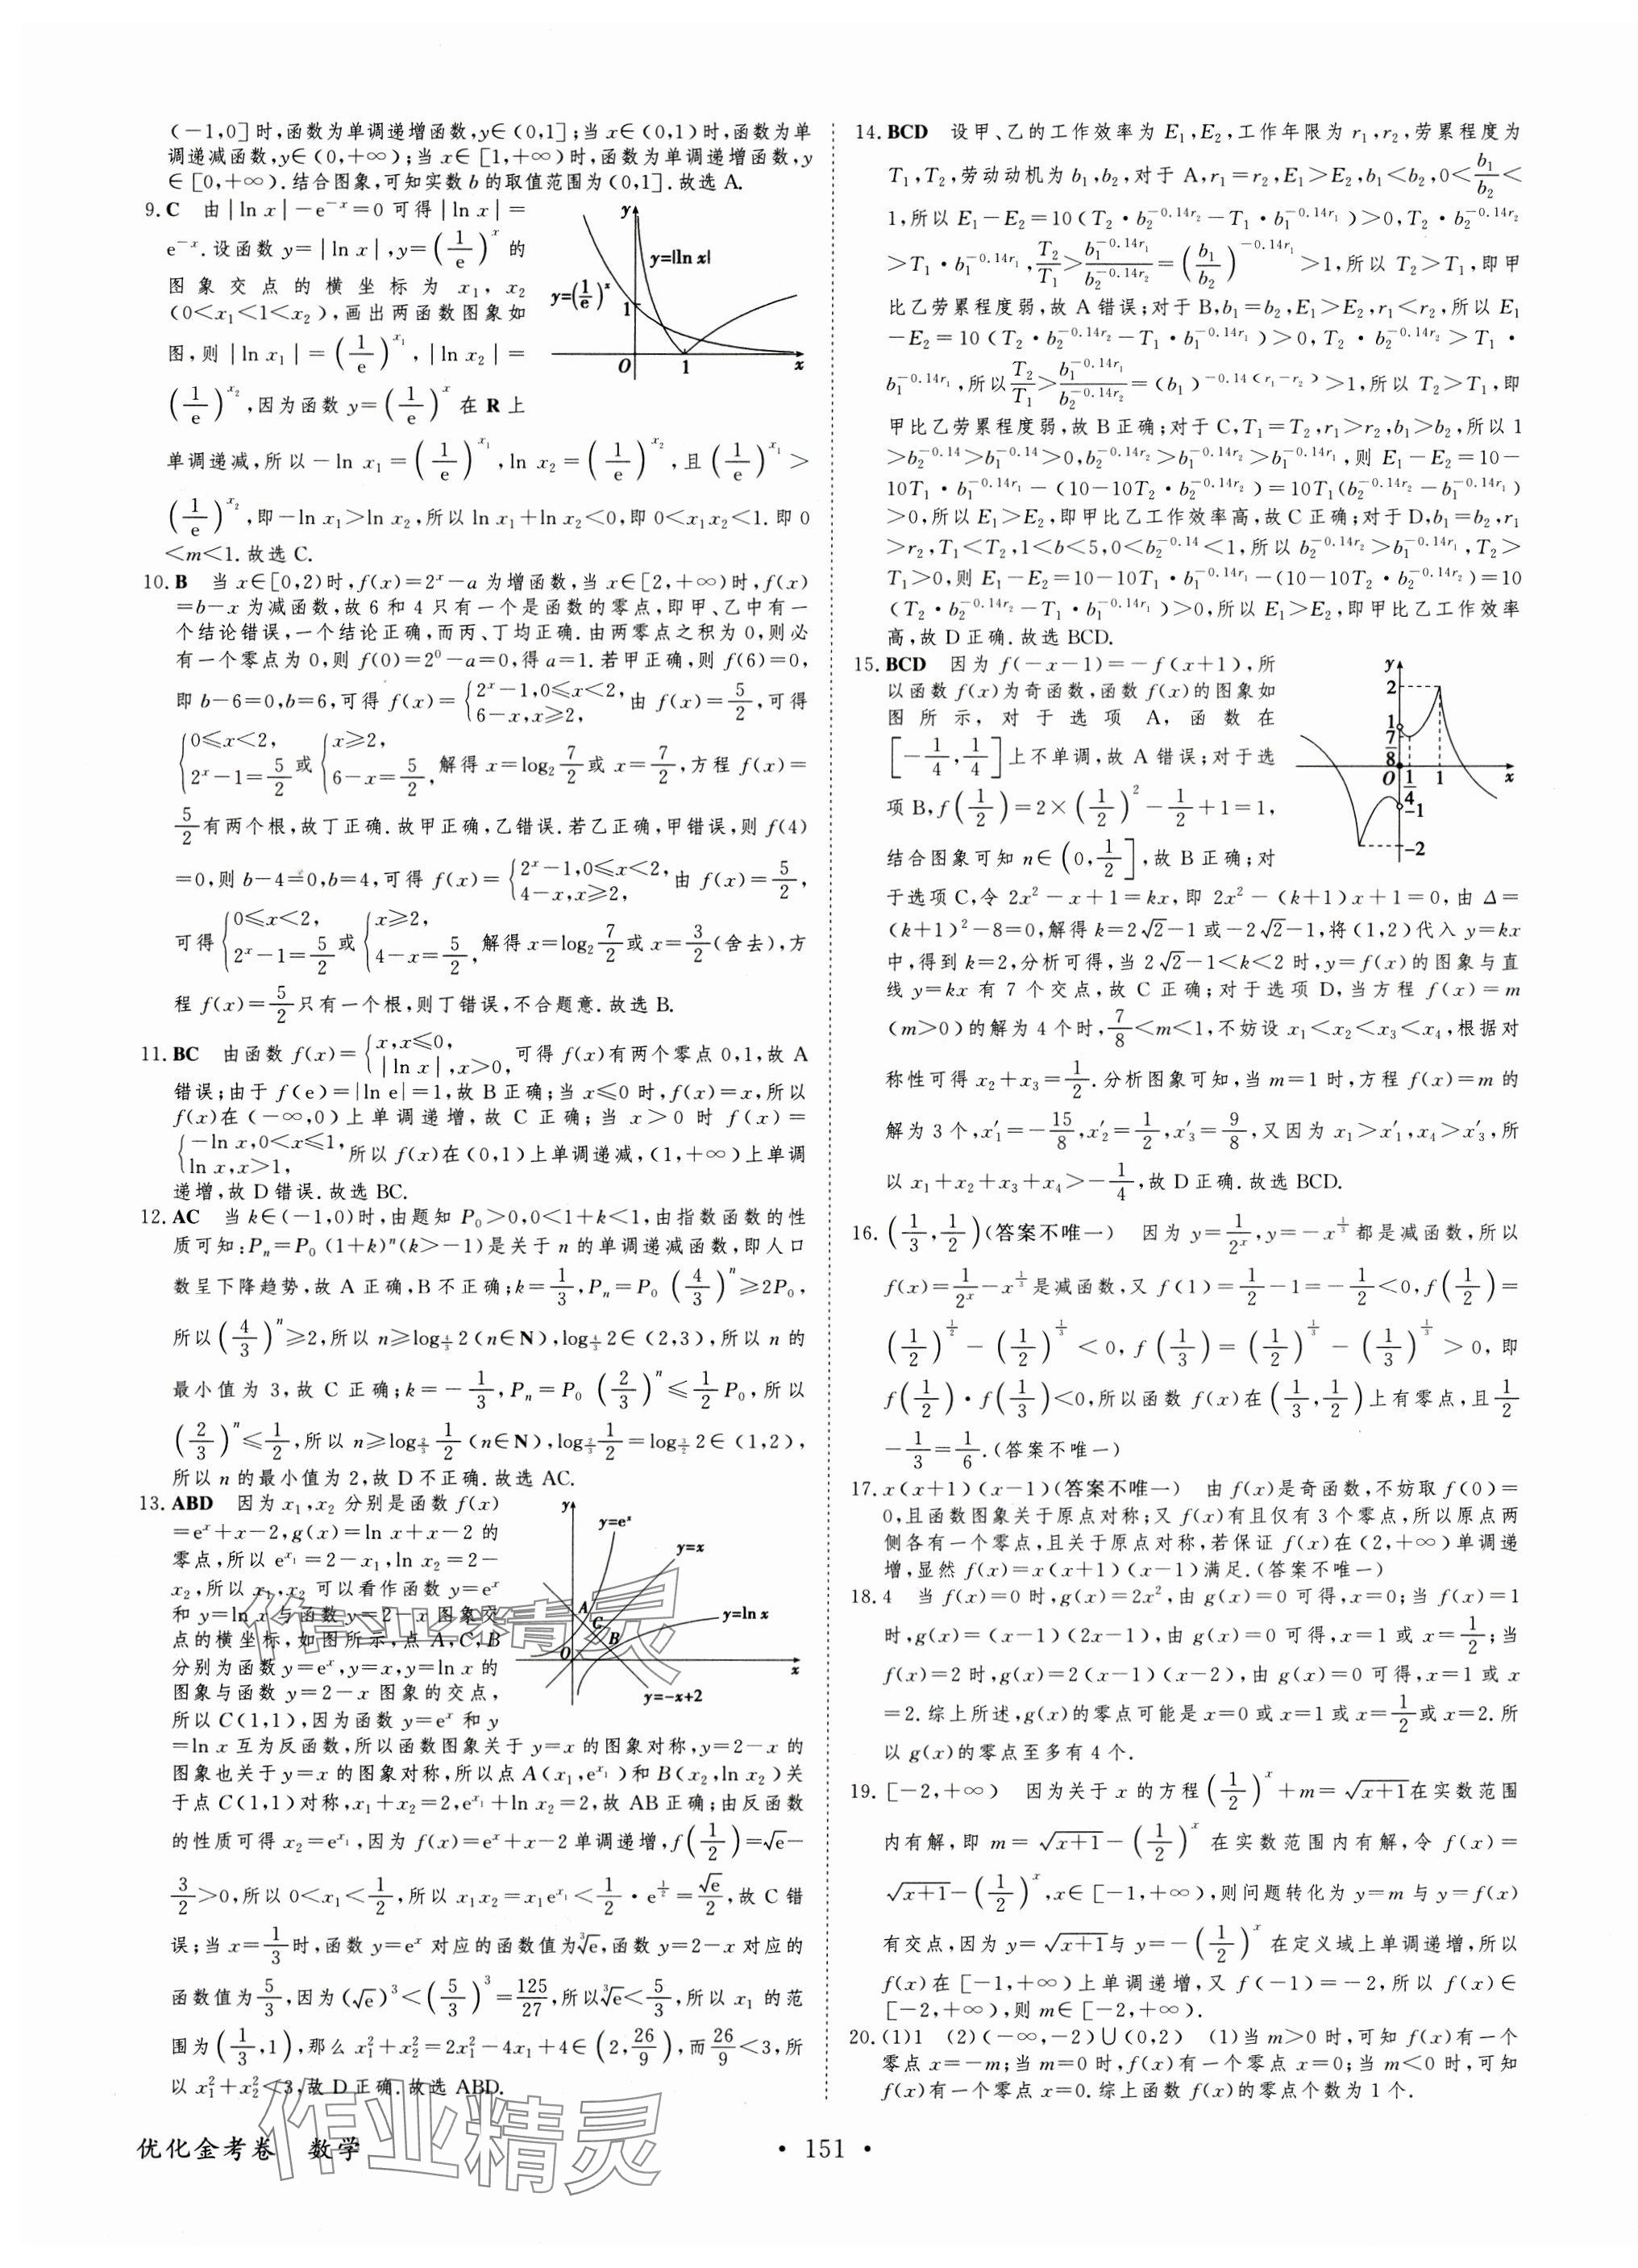 (-1,0]时,函数为单调递增函数,y∈(0,1];当x∈(0,1)时,函数为单
调递减函数,y∈(0,+∞);当x∈[1,+∞)时,函数为单调递增函数,y
∈[0,+∞).结合图象,可知实数b的取值范围为(0,1].故选A.
9.C 由|ln x|-e⁻ˣ=0可得|ln x|=
e⁻ˣ.设函数y=|ln x|,y=(1/e)^x的
图象交点的横坐标为x₁,x₂
(0<x₁<1<x₂),画出两函数图象如
图,则|ln x₁|=(1/e)^x₁,|ln x₂|=
(1/e)^x₂,因为函数y=(1/e)^x在R上
y
y=|ln x|
y=(1/e)^x
1
O
1
x
单调递减,所以-ln x₁=(1/e)^x₁,ln x₂=(1/e)^x₂,且(1/e)^x₁>
(1/e)^x₂,即-ln x₁>ln x₂,所以ln x₁+ln x₂<0,即0<x₁x₂<1.即0
<m<1.故选C.
10.B 当x∈[0,2)时,f(x)=2ˣ-a为增函数,当x∈[2,+∞)时,f(x)
=b-x为减函数,故6和4只有一个是函数的零点,即甲、乙中有一
个结论错误,一个结论正确,而丙、丁均正确.由两零点之积为0,则必
有一个零点为0,则f(0)=2⁰-a=0,得a=1.若甲正确,则f(6)=0,
即b-6=0,b=6,可得f(x)={2ˣ-1,0≤x<2, 6-x,x≥2, 由f(x)=5/2,可得
{0≤x<2, 2ˣ-1=5/2 或{x≥2, 6-x=5/2, 解得x=log₂7/2或x=7/2,方程f(x)=
5/2有两个根,故丁正确.故甲正确,乙错误.若乙正确,甲错误,则f(4)
=0,则b-4=0,b=4,可得f(x)={2ˣ-1,0≤x<2, 4-x,x≥2, 由f(x)=5/2,
可得{0≤x<2, 2ˣ-1=5/2 或{x≥2, 4-x=5/2, 解得x=log₂7/2或x=3/2(舍去),方
程f(x)=5/2只有一个根,则丁错误,不合题意.故选B.
11.BC 由函数f(x)={x,x≤0, |ln x|,x>0, 可得f(x)有两个零点0,1,故A
错误;由于f(e)=|ln e|=1,故B正确;当x≤0时,f(x)=x,所以
f(x)在(-∞,0)上单调递增,故C正确;当x>0时f(x)=
{-ln x,0<x≤1, ln x,x>1, 所以f(x)在(0,1)上单调递减,(1,+∞)上单调
递增,故D错误.故选BC.
12.AC 当k∈(-1,0)时,由题知P₀>0,0<1+k<1,由指数函数的性
质可知:Pₙ=P₀(1+k)ⁿ(k>-1)是关于n的单调递减函数,即人口
数呈下降趋势,故A正确,B不正确;k=1/3,Pₙ=P₀(4/3)ⁿ≥2P₀,
所以(4/3)ⁿ≥2,所以n≥log_{4/3}2(n∈N),log_{4/3}2∈(2,3),所以n的
最小值为3,故C正确;k=-1/3,Pₙ=P₀(2/3)ⁿ≤1/2P₀,所以
(2/3)ⁿ≤1/2,所以n≥log_{2/3}1/2(n∈N),log_{2/3}1/2=log_{3/2}2∈(1,2),
所以n的最小值为2,故D不正确.故选AC.
13.ABD 因为x₁,x₂分别是函数f(x)
=eˣ+x-2,g(x)=ln x+x-2的
零点,所以e^x₁=2-x₁,ln x₂=2-
x₂,所以x₁,x₂可以看作函数y=eˣ
和y=ln x与函数y=2-x图象交
点的横坐标,如图所示,点A,C,B
分别为函数y=eˣ,y=x,y=ln x的
图象与函数y=2-x图象的交点,
所以C(1,1),因为函数y=eˣ和y
y
y=eˣ
y=x
y=ln x
A
C
B
O
x
y=-x+2
=ln x互为反函数,所以函数图象关于y=x的图象对称,y=2-x的
图象也关于y=x的图象对称,所以点A(x₁,e^x₁)和B(x₂,ln x₂)关
于点C(1,1)对称,x₁+x₂=2,e^x₁+ln x₂=2,故AB正确;由反函数
的性质可得x₂=e^x₁,因为f(x)=eˣ+x-2单调递增,f(1/2)=√e-
3/2>0,所以0<x₁<1/2,所以x₁x₂=x₁e^x₁<1/2·e^{1/2}=√e/2,故C错
误;当x=1/3时,函数y=eˣ对应的函数值为∛e,函数y=2-x对应的
函数值为5/3,因为(√e)³<(5/3)³=125/27,所以∛e<5/3,所以x₁的范
围为(1/3,1),那么x₁²+x₂²=2x₁²-4x₁+4∈(2,26/9),而26/9<3,所
以x₁²+x₂²<3,故D正确.故选ABD.
14.BCD 设甲、乙的工作效率为E₁,E₂,工作年限为r₁,r₂,劳累程度为
T₁,T₂,劳动动机为b₁,b₂,对于A,r₁=r₂,E₁>E₂,b₁<b₂,0<b₁/b₂<
1,所以E₁-E₂=10(T₂·b₂^{-0.14r₂}-T₁·b₁^{-0.14r₁})>0,T₂·b₂^{-0.14r₂}
>T₁·b₁^{-0.14r₁},T₂/T₁>b₁^{-0.14r₁}/b₂^{-0.14r₂}=(b₁/b₂)^{-0.14r₁}>1,所以T₂>T₁,即甲
比乙劳累程度弱,故A错误;对于B,b₁=b₂,E₁>E₂,r₁<r₂,所以E₁
-E₂=10(T₂·b₂^{-0.14r₂}-T₁·b₁^{-0.14r₁})>0,T₂·b₂^{-0.14r₂}>T₁·
b₁^{-0.14r₁},所以T₂/T₁>b₁^{-0.14r₁}/b₂^{-0.14r₂}=(b₁)^{-0.14(r₁-r₂)}>1,所以T₂>T₁,即
甲比乙劳累程度弱,故B正确;对于C,T₁=T₂,r₁>r₂,b₁>b₂,所以1
>b₂^{-0.14}>b₁^{-0.14}>0,b₂^{-0.14r₂}>b₁^{-0.14r₂}>b₁^{-0.14r₁},则E₁-E₂=10-
10T₁·b₁^{-0.14r₁}-(10-10T₂·b₂^{-0.14r₂})=10T₁(b₂^{-0.14r₂}-b₁^{-0.14r₁})
>0,所以E₁>E₂,即甲比乙工作效率高,故C正确;对于D,b₁=b₂,r₁
>r₂,T₁<T₂,1<b<5,0<b₂^{-0.14}<1,所以b₂^{-0.14r₂}>b₁^{-0.14r₁},T₂>
T₁>0,则E₁-E₂=10-10T₁·b₁^{-0.14r₁}-(10-10T₂·b₂^{-0.14r₂})=10
(T₂·b₂^{-0.14r₂}-T₁·b₁^{-0.14r₁})>0,所以E₁>E₂,即甲比乙工作效率
高,故D正确.故选BCD.
15.BCD 因为f(-x-1)=-f(x+1),所
以函数f(x)为奇函数,函数f(x)的图象如
图所示,对于选项A,函数在
[-1/4,1/4]上不单调,故A错误;对于选
项B,f(1/2)=2×(1/2)²-1/2+1=1,
结合图象可知n∈(0,1/2],故B正确;对
y
2
1
7/8
O
1/4
1
x
-1
-2
于选项C,令2x²-x+1=kx,即2x²-(k+1)x+1=0,由Δ=
(k+1)²-8=0,解得k=2√2-1或-2√2-1,将(1,2)代入y=kx
中,得到k=2,分析可得,当2√2-1<k<2时,y=f(x)的图象与直
线y=kx有7个交点,故C正确;对于选项D,当方程f(x)=m
(m>0)的解为4个时,7/8<m<1,不妨设x₁<x₂<x₃<x₄,根据对
称性可得x₂+x₃=1/2.分析图象可知,当m=1时,方程f(x)=m的
解为3个,x′₁=-15/8,x′₂=1/2,x′₃=9/8,又因为x₁>x′₁,x₄>x′₃,所
以x₁+x₂+x₃+x₄>-1/4,故D正确.故选BCD.
16.(1/3,1/2)(答案不唯一) 因为y=1/2ˣ,y=-x^{1/3}都是减函数,所以
f(x)=1/2ˣ-x^{1/3}是减函数,又f(1)=1/2-1=-1/2<0,f(1/2)=
(1/2)^{1/2}-(1/2)^{1/3}<0,f(1/3)=(1/2)^{1/3}-(1/3)^{1/3}>0,即
f(1/2)·f(1/3)<0,所以函数f(x)在(1/3,1/2)上有零点,且1/2
-1/3=1/6.(答案不唯一)
17.x(x+1)(x-1)(答案不唯一) 由f(x)是奇函数,不妨取f(0)=
0,且函数图象关于原点对称;又f(x)有且仅有3个零点,所以原点两
侧各有一个零点,且关于原点对称,若保证f(x)在(2,+∞)单调递
增,显然f(x)=x(x+1)(x-1)满足.(答案不唯一)
18.4 当f(x)=0时,g(x)=2x²,由g(x)=0可得,x=0;当f(x)=1
时,g(x)=(x-1)(2x-1),由g(x)=0可得,x=1或x=1/2;当
f(x)=2时,g(x)=2(x-1)(x-2),由g(x)=0可得,x=1或x
=2.综上所述,g(x)的零点可能是x=0或x=1或x=1/2或x=2.所
以g(x)的零点至多有4个.
19.[-2,+∞) 因为关于x的方程(1/2)^x+m=√(x+1)在实数范围
内有解,即m=√(x+1)-(1/2)^x在实数范围内有解,令f(x)=
√(x+1)-(1/2)^x,x∈[-1,+∞),则问题转化为y=m与y=f(x)
有交点,因为y=√(x+1)与y=-(1/2)^x在定义域上单调递增,所以
f(x)在[-1,+∞)上单调递增,又f(-1)=-2,所以f(x)∈
[-2,+∞),则m∈[-2,+∞).
20.(1)1 (2)(-∞,-2)∪(0,2) (1)当m>0时,可知f(x)有一个
零点x=-m;当m=0时,f(x)有一个零点x=0;当m<0时,可知
f(x)有一个零点x=0.综上函数f(x)的零点个数为1个.
作业精灵
作业精灵
优化金考卷 数学
· 151 ·